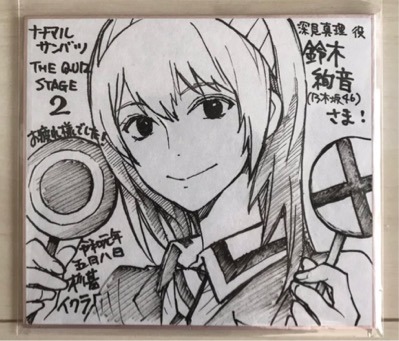 ナナマル
サンバツ
THE QUIZ
STAGE
2
お疲れ様でした!
深見真理 役
鈴木
絢音
(乃木坂46)
さま!
令和元年
五月八日
杉基
イクラ